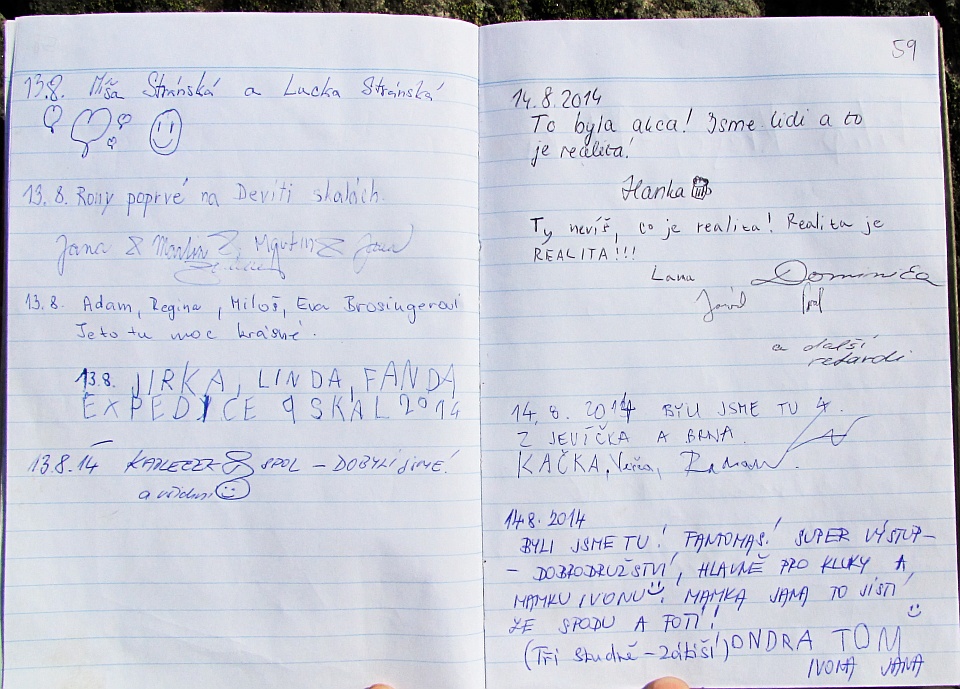 13.8. Míša Stránská a Lucka Stránská
13.8. Rony poprvé na Devíti skalách.
Jana & Martin &, Martin & Jana
13.8. Adam, Regina, Miloš, Eva Brosingerovi
Jeto tu moc krásné.
13.8. JIRKA, LINDA, FANDA
EXPEDICE 9 SKAL 2014
13.8.14 & SPOL – DOBYLI JSME!
a
59
14.8.2014
To byla akca! Jsme lidi a to
je realita!
Hanka
Ty nevíš, co je realita! Realita je
REALITA!!!
Lana Dominika
a další
retardi
14.8.2014 BYLI JSME TU 4.
Z JEVÍČKA A BRNA.
KAČKA, Verča, Roman.
14.8.2014
BYLI JSME TU! FANTOMAS! SUPER VÝSTUP–
– DOBRODRUŽSTVÍ, HLAVNĚ PRO KLUKY A
MAMKU IVONU! MAMKA JANA TO JISTÍ
ZE SPODU A FOTÍ!
(Tři Studně – Zátiší) ONDRA TOM
IVONA JANA